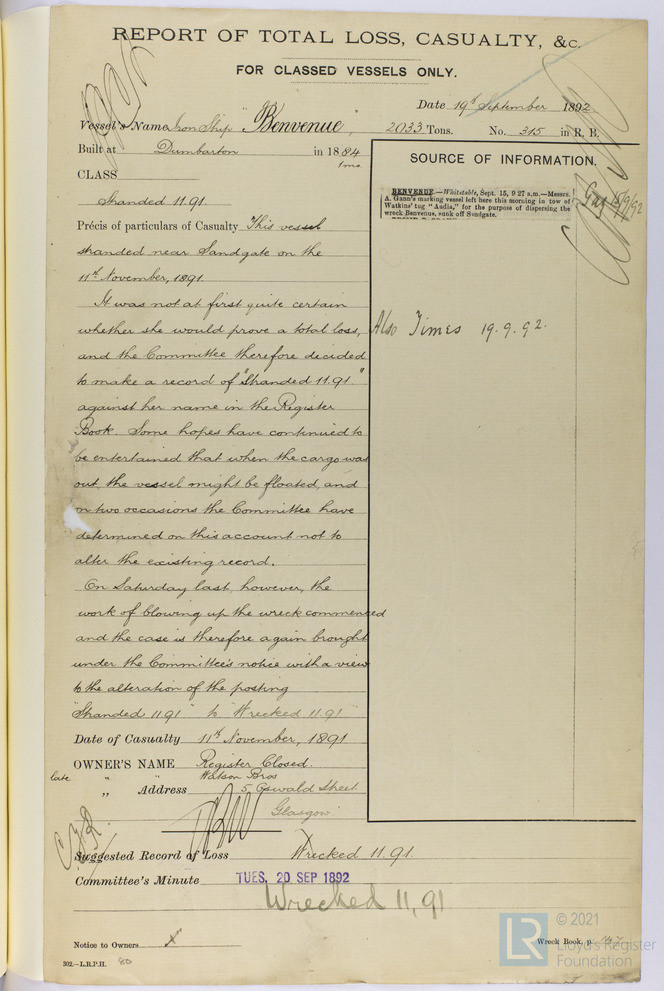 REPORT OF TOTAL LOSS, CASUALTY, &c.
FOR CLASSED VESSELS ONLY.
Date 19th September 1892
Vessel's Name Iron Ship "Benvenue", 2033 Tons. No. 315 in R. B.
Built at Dumbarton in 1884
1mo
CLASS
Stranded 11.91.
Précis of particulars of Casualty This vessel
stranded near Sandgate on the
11th November, 1891.
It was not at first quite certain
whether she would prove a total loss,
and the Committee therefore decided
to make a record of "Stranded 11.91."
against her name in the Register
Book. Some hopes have continued to
be entertained that when the cargo was
out the vessel might be floated, and
on two occasions the Committee have
determined on this account not to
alter the existing record.
On Saturday last, however, the
work of blowing up the wreck commenced
and the case is therefore again brought
under the Committee's notice with a view
to the alteration of the posting
"Stranded 11.91" to "Wrecked 11.91"
Date of Casualty 11th November, 1891
OWNER'S NAME Register Closed.
late " " Watson Bros
" Address 5, Oswald Street
Glasgow
SOURCE OF INFORMATION.
BENVENUE.—Whitstable, Sept. 15, 9 27 a.m.—Messrs.
A. Gann's marking vessel left here this morning in tow of
Watkins' tug "Andia," for the purpose of dispersing the
wreck Benvenue, sunk off Sandgate.
15/9/92
Also Times 19.9.92.
Suggested Record of Loss Wrecked 11.91.
Committee's Minute TUES. 20 SEP 1892
Wrecked 11,91
Notice to Owners X
Wreck Book, p.
302.—L.R.P.H. 80
LR
© 2021
Lloyd's Register
Foundation